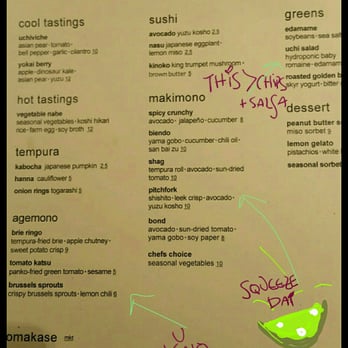 cool tastings
uchiviche
asian pear·tomato·
bell pepper·garlic·cilantro 10
yokai berry
apple·dinosaur kale·
asian pear·yuzu 12
hot tastings
vegetable nabe
seasonal vegetables·koshi hikari
rice·farm egg·soy broth 12
tempura
kabocha japanese pumpkin 2.5
hanna cauliflower 5
onion rings togarashi 5
agemono
brie ringo
tempura-fried brie·apple chutney·
sweet potato crisp 9
tomato katsu
panko-fried green tomato·sesame 5
brussels sprouts
crispy brussels sprouts·lemon chili 6
omakase mkt
sushi
avocado yuzu kosho 2.5
nasu japanese eggplant·
lemon miso 2.5
kinoko king trumpet mushroom·
brown butter 5
THIS > CHIPS
+ SALSA
makimono
spicy crunchy
avocado·jalapeño·cucumber 8
biendo
yama gobo·cucumber·chili oil·
san bai zu 10
shag
tempura roll·avocado·sun-dried
tomato 10
pitchfork
shishito·leek crisp·avocado·
yuzu kosho 10
bond
avocado·sun-dried tomato·
yama gobo·soy paper 8
chefs choice
seasonal vegetables 10
greens
edamame
soybeans·sea salt
uchi salad
hydroponic baby
romaine·edamame
roasted golden b
skyr yogurt·bitter
dessert
peanut butter s
miso sorbet 9
lemon gelato
pistachios·white
seasonal sorbet
SQUEEZE
DAT
U